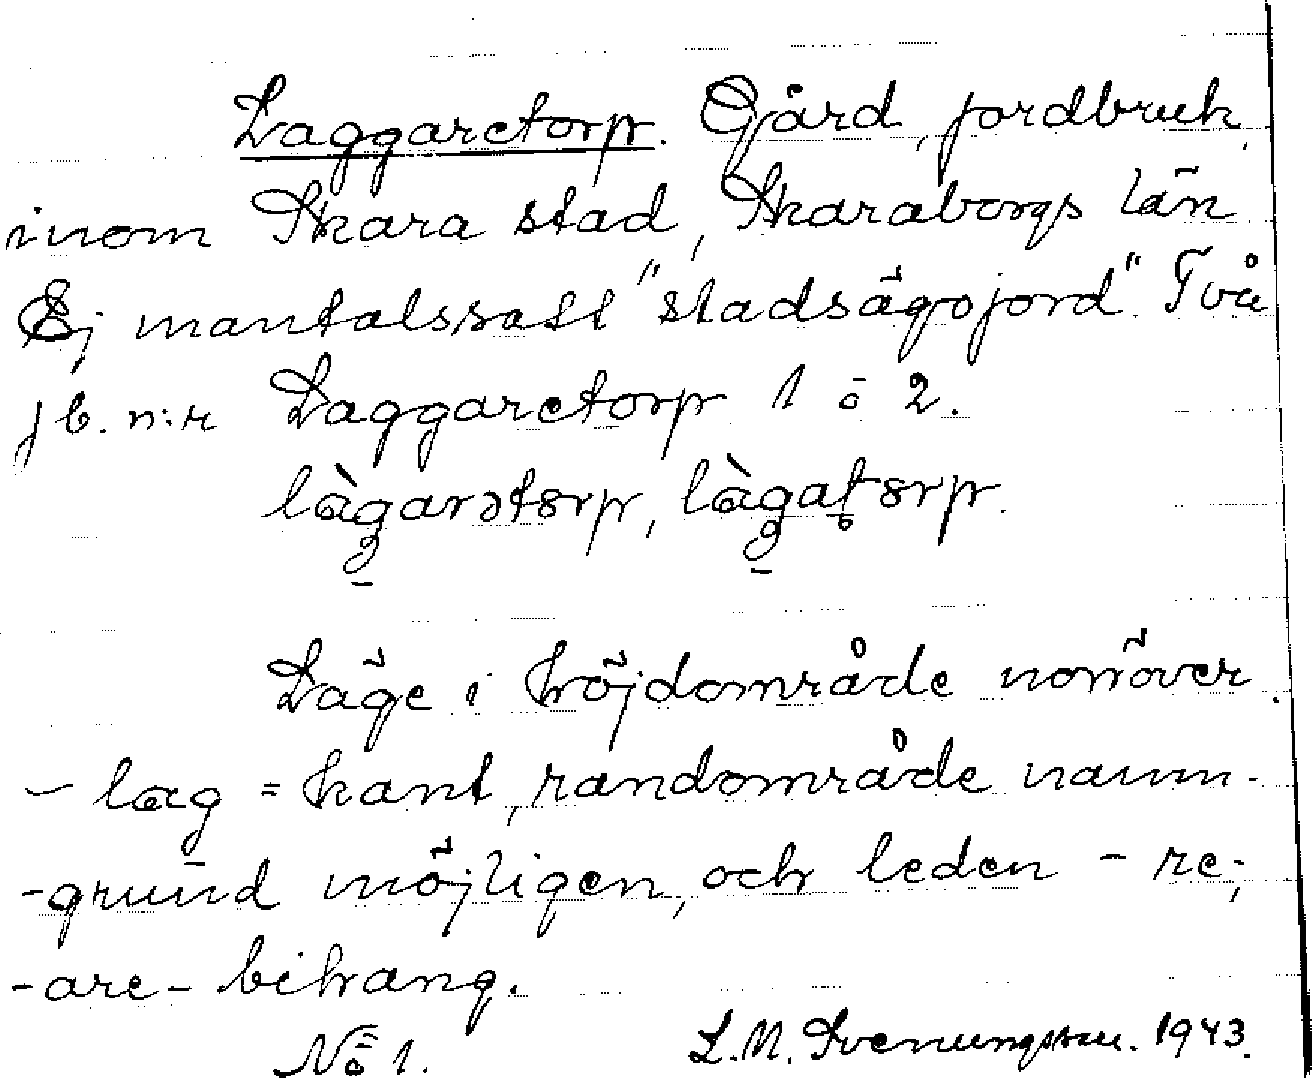 Laggaretorp. Gård, jordbruk,
inom Skara stad, Skaraborgs län
Ej mantalssatt "stadsägojord". Två
jb. n:r Laggaretorp 1 o 2.
làgarətorp, làgatorp.
Läge i höjdområde norröver.
– lag = kant, randområde namn-
-grund möjligen, och leden – re;
-are- bihang.
No 1. L.M. Svenungsson. 1943.